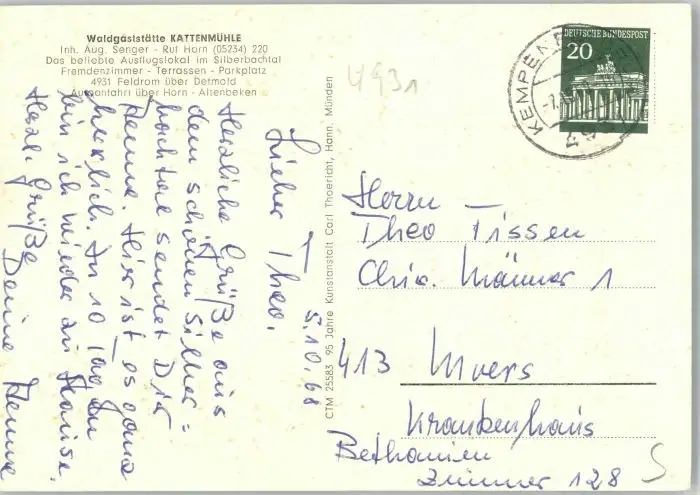 Waldgaststätte KATTENMÜHLE
Inh. Aug. Senger - Ruf Horn (05234) 220
Das beliebte Ausflugslokal im Silberbachtal
Fremdenzimmer - Terrassen - Parkplatz
4931 Feldrom über Detmold
Autoanfahrt über Horn - Altenbeken
5.10.68
Lieber Theo.
Herzliche Grüße aus
dem schönen Silber=
bachtal sendet Dir
Henne. Hier ist es ganz
herrlich. In 10 Tagen
bin ich wieder zu Hause.
Herzl. Grüße
Deine Henne
CTM 25583 95 Jahre Kunstanstalt Carl Thoericht, Hann. Münden
4931
DEUTSCHE BUNDESPOST
20
KEMPEN
Herrn
Theo Tissen
Chir. Männer 1
413 Moers
Krankenhaus
Bethanien
Zimmer 128